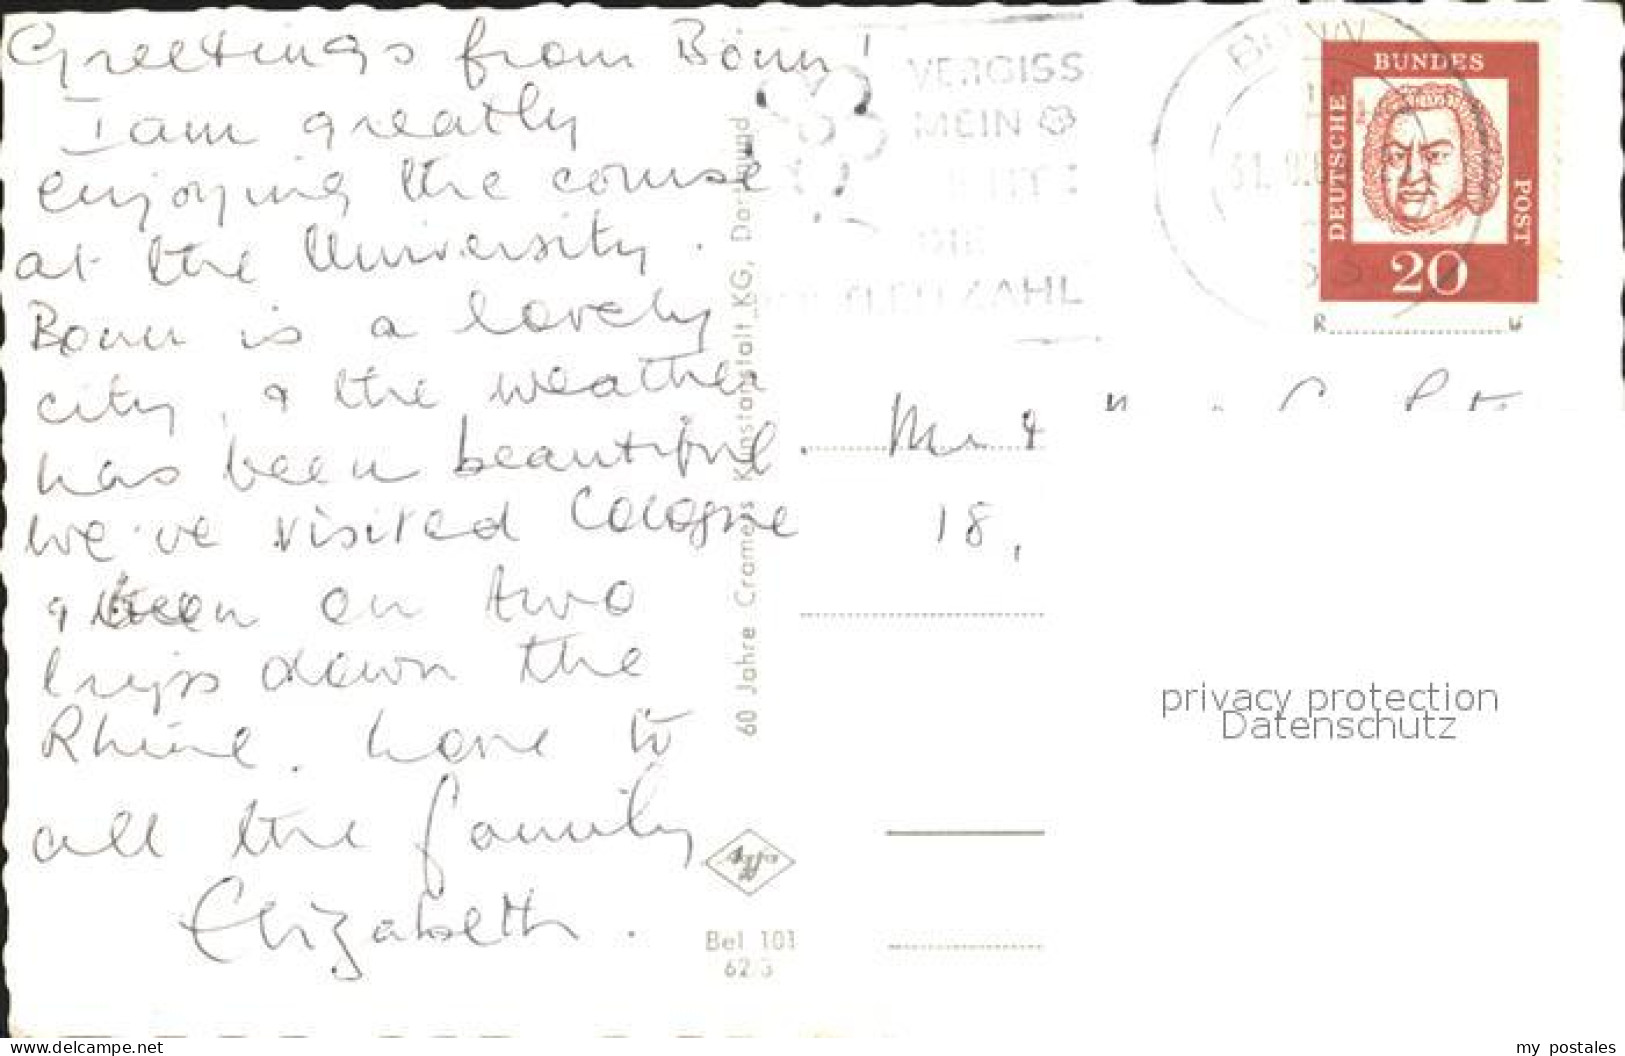 Greetings from Bonn!
I am greatly
enjoying the course
at the University.
Bonn is a lovely
city, & the weather
has been beautiful.
We've visited Cologne
& been on two
trips down the
Rhine. Love to
all the family
Elizabeth.
60 Jahre Cramers Kunstanstalt KG, Dortmund
Bel 101
62/3
VERGISS
MEIN
NICHT
DIE
POSTLEITZAHL
BONN
DEUTSCHE
BUNDES
POST
20
Mr &
18,
privacy protection
Datenschutz
www.delcampe.net
my postales